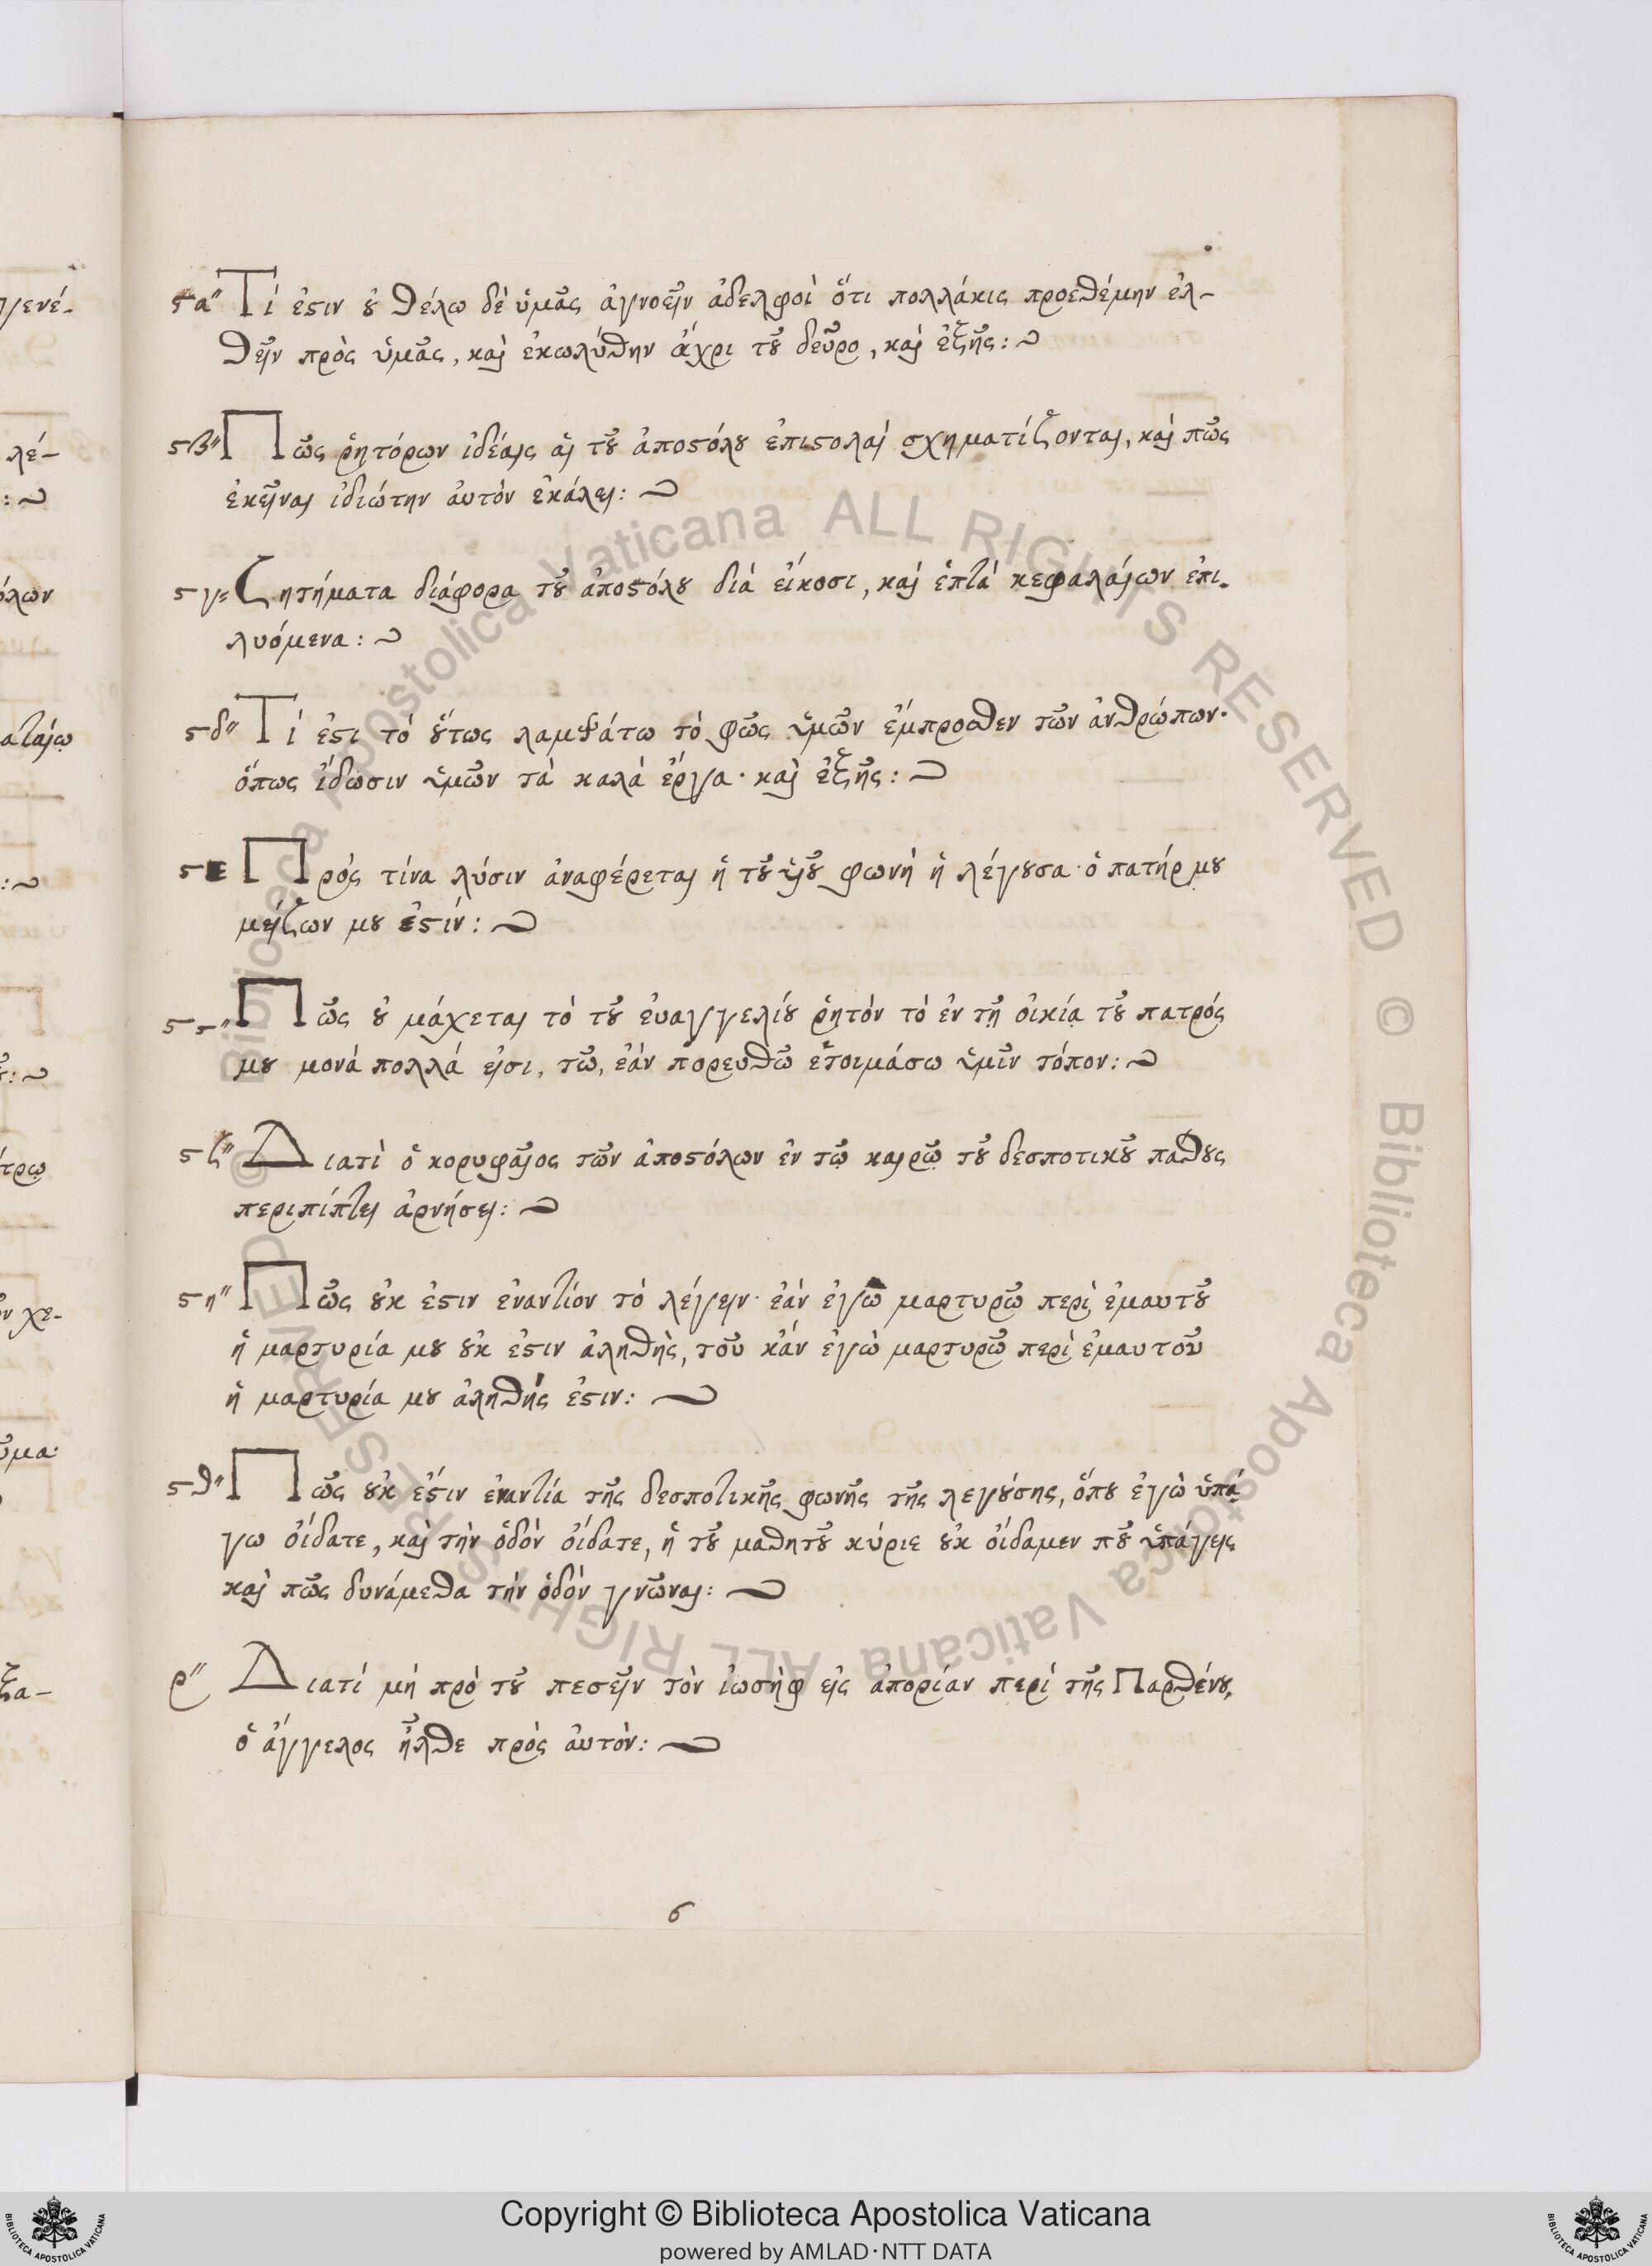 ϛαʺ Τί ἐστιν οὐ θέλω δὲ ὑμᾶς ἀγνοεῖν ἀδελφοὶ ὅτι πολλάκις προεθέμην ἐλ-
θεῖν πρὸς ὑμᾶς, καὶ ἐκωλύθην ἄχρι τοῦ δεῦρο, καὶ ἑξῆς: ~
ϛβʺ Πῶς ῥητόρων ἰδέαις αἱ τοῦ ἀποστόλου ἐπιστολαὶ σχηματίζονται, καὶ πῶς
ἐκεῖναι ἰδιώτην αὐτὸν ἐκάλει: ~
ϛγ= Ζητήματα διάφορα τοῦ ἀποστόλου διὰ εἴκοσι, καὶ ἑπτὰ κεφαλαίων ἐπι-
λυόμενα: ~
ϛδʺ Τί ἐστι τὸ οὕτως λαμψάτω τὸ φῶς ὑμῶν ἔμπροσθεν τῶν ἀνθρώπων·
ὅπως ἴδωσιν ὑμῶν τὰ καλὰ ἔργα· καὶ ἑξῆς: ~
ϛε Πρὸς τίνα λύσιν ἀναφέρεται ἡ τοῦ υἱοῦ φωνὴ ἡ λέγουσα· ὁ πατήρ μου
μείζων μου ἐστίν: ~
ϛϛʺ Πῶς οὐ μάχεται τὸ τοῦ εὐαγγελίου ῥητὸν τὸ ἐν τῇ οἰκίᾳ τοῦ πατρός
μου μονὰ πολλά εἰσι, τῶ, ἐὰν πορευθῶ ἑτοιμάσω ὑμῖν τόπον: ~
ϛζʺ Διατὶ ὁ κορυφαῖος τῶν ἀποστόλων ἐν τῷ καιρῷ τοῦ δεσποτικοῦ παθους
περιπίπτει ἀρνήσει: ~
ϛηʺ Πῶς οὐκ ἔστιν ἐναντίον τὸ λέγειν· ἐὰν ἐγὼ μαρτυρῶ περὶ ἐμαυτοῦ
ἡ μαρτυρία μου οὐκ ἔστιν ἀληθὴς, τοῦ κἂν ἐγὼ μαρτυρῶ περὶ ἐμαυτοῦ
ἡ μαρτυρία μου ἀληθής ἐστιν: ~
ϛθʺ Πῶς οὐκ ἔστιν ἐναντία τῆς δεσποτικῆς φωνῆς τῆς λεγούσης, ὅπου ἐγὼ ὑπά-
γω οἴδατε, καὶ τὴν ὁδὸν οἴδατε, ἡ τοῦ μαθητοῦ κύριε οὐκ οἴδαμεν ποῦ ὑπάγεις
καὶ πῶς δυνάμεθα τὴν ὁδὸν γνῶναι: ~
ρʺ Διατί μὴ πρὸ τοῦ πεσεῖν τὸν ἰωσὴφ εἰς ἀπορίαν περὶ τῆς Παρθένου,
ὁ ἄγγελος ἦλθε πρὸς αὐτὸν: ~
6
Copyright © Biblioteca Apostolica Vaticana
powered by AMLAD·NTT DATA